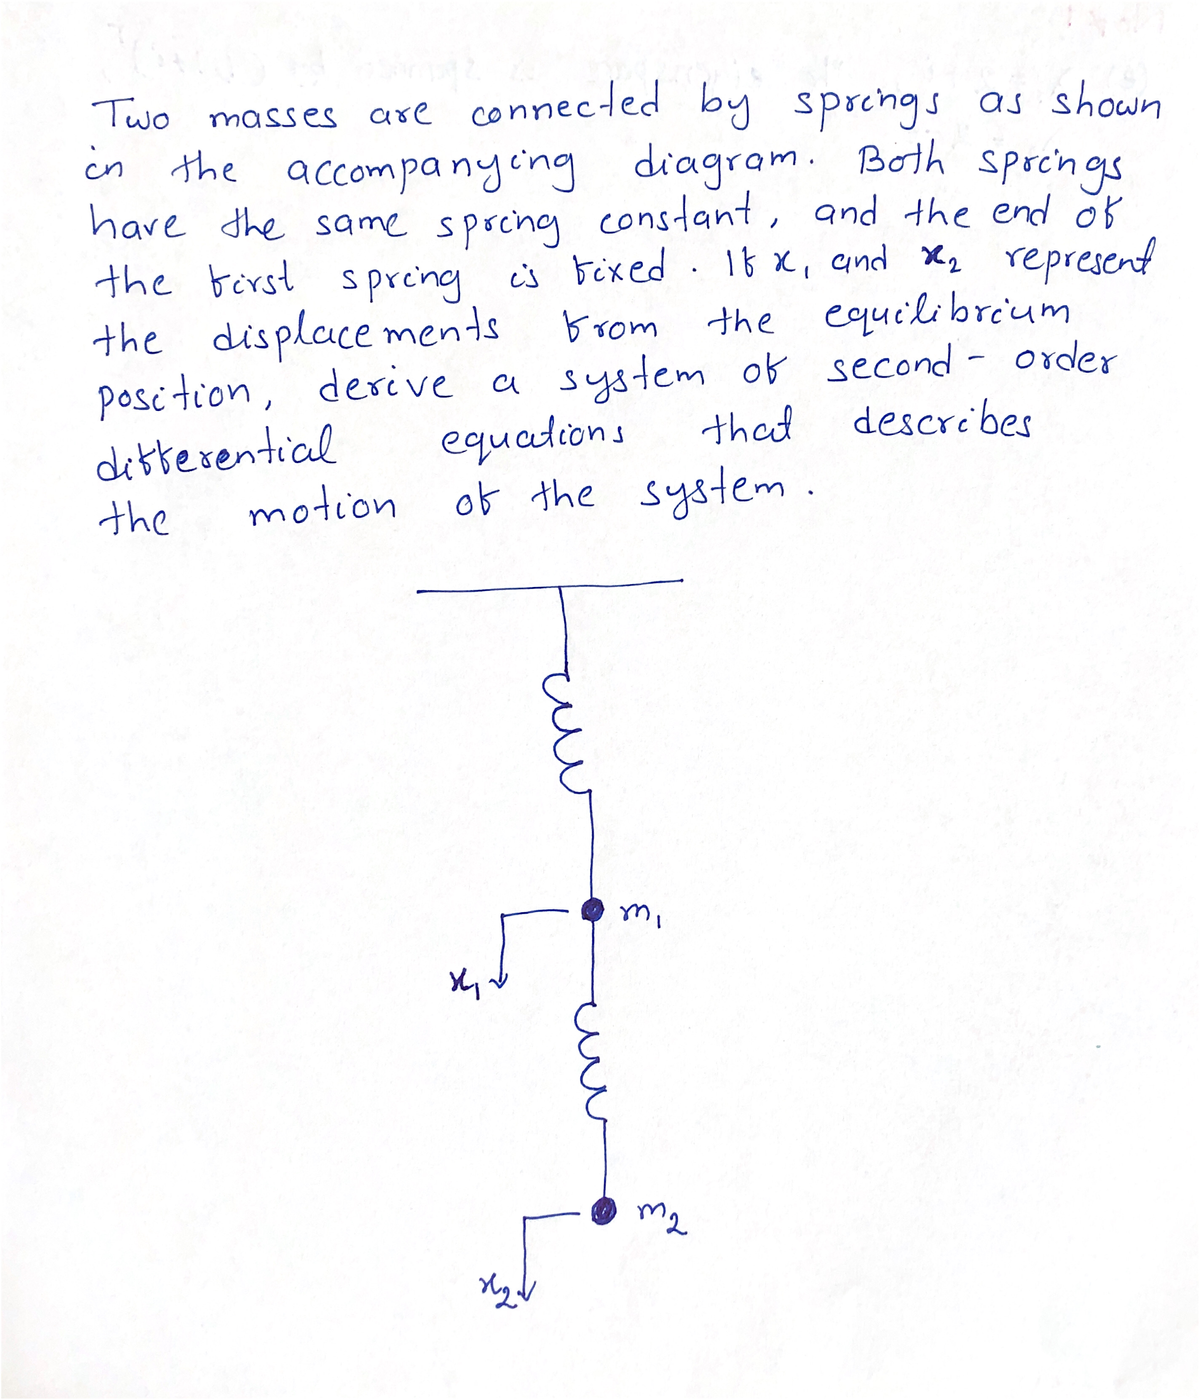 Two masses are connected by springs as shown
in the accompanying diagram. Both springs
have the same spring constant, and the end of
the first spring is fixed. If x₁ and x₂ represent
the displacements from the equilibrium
position, derive a system of second - order
differential equations that describes
the motion of the system.
m₁
x₁
m₂
x₂